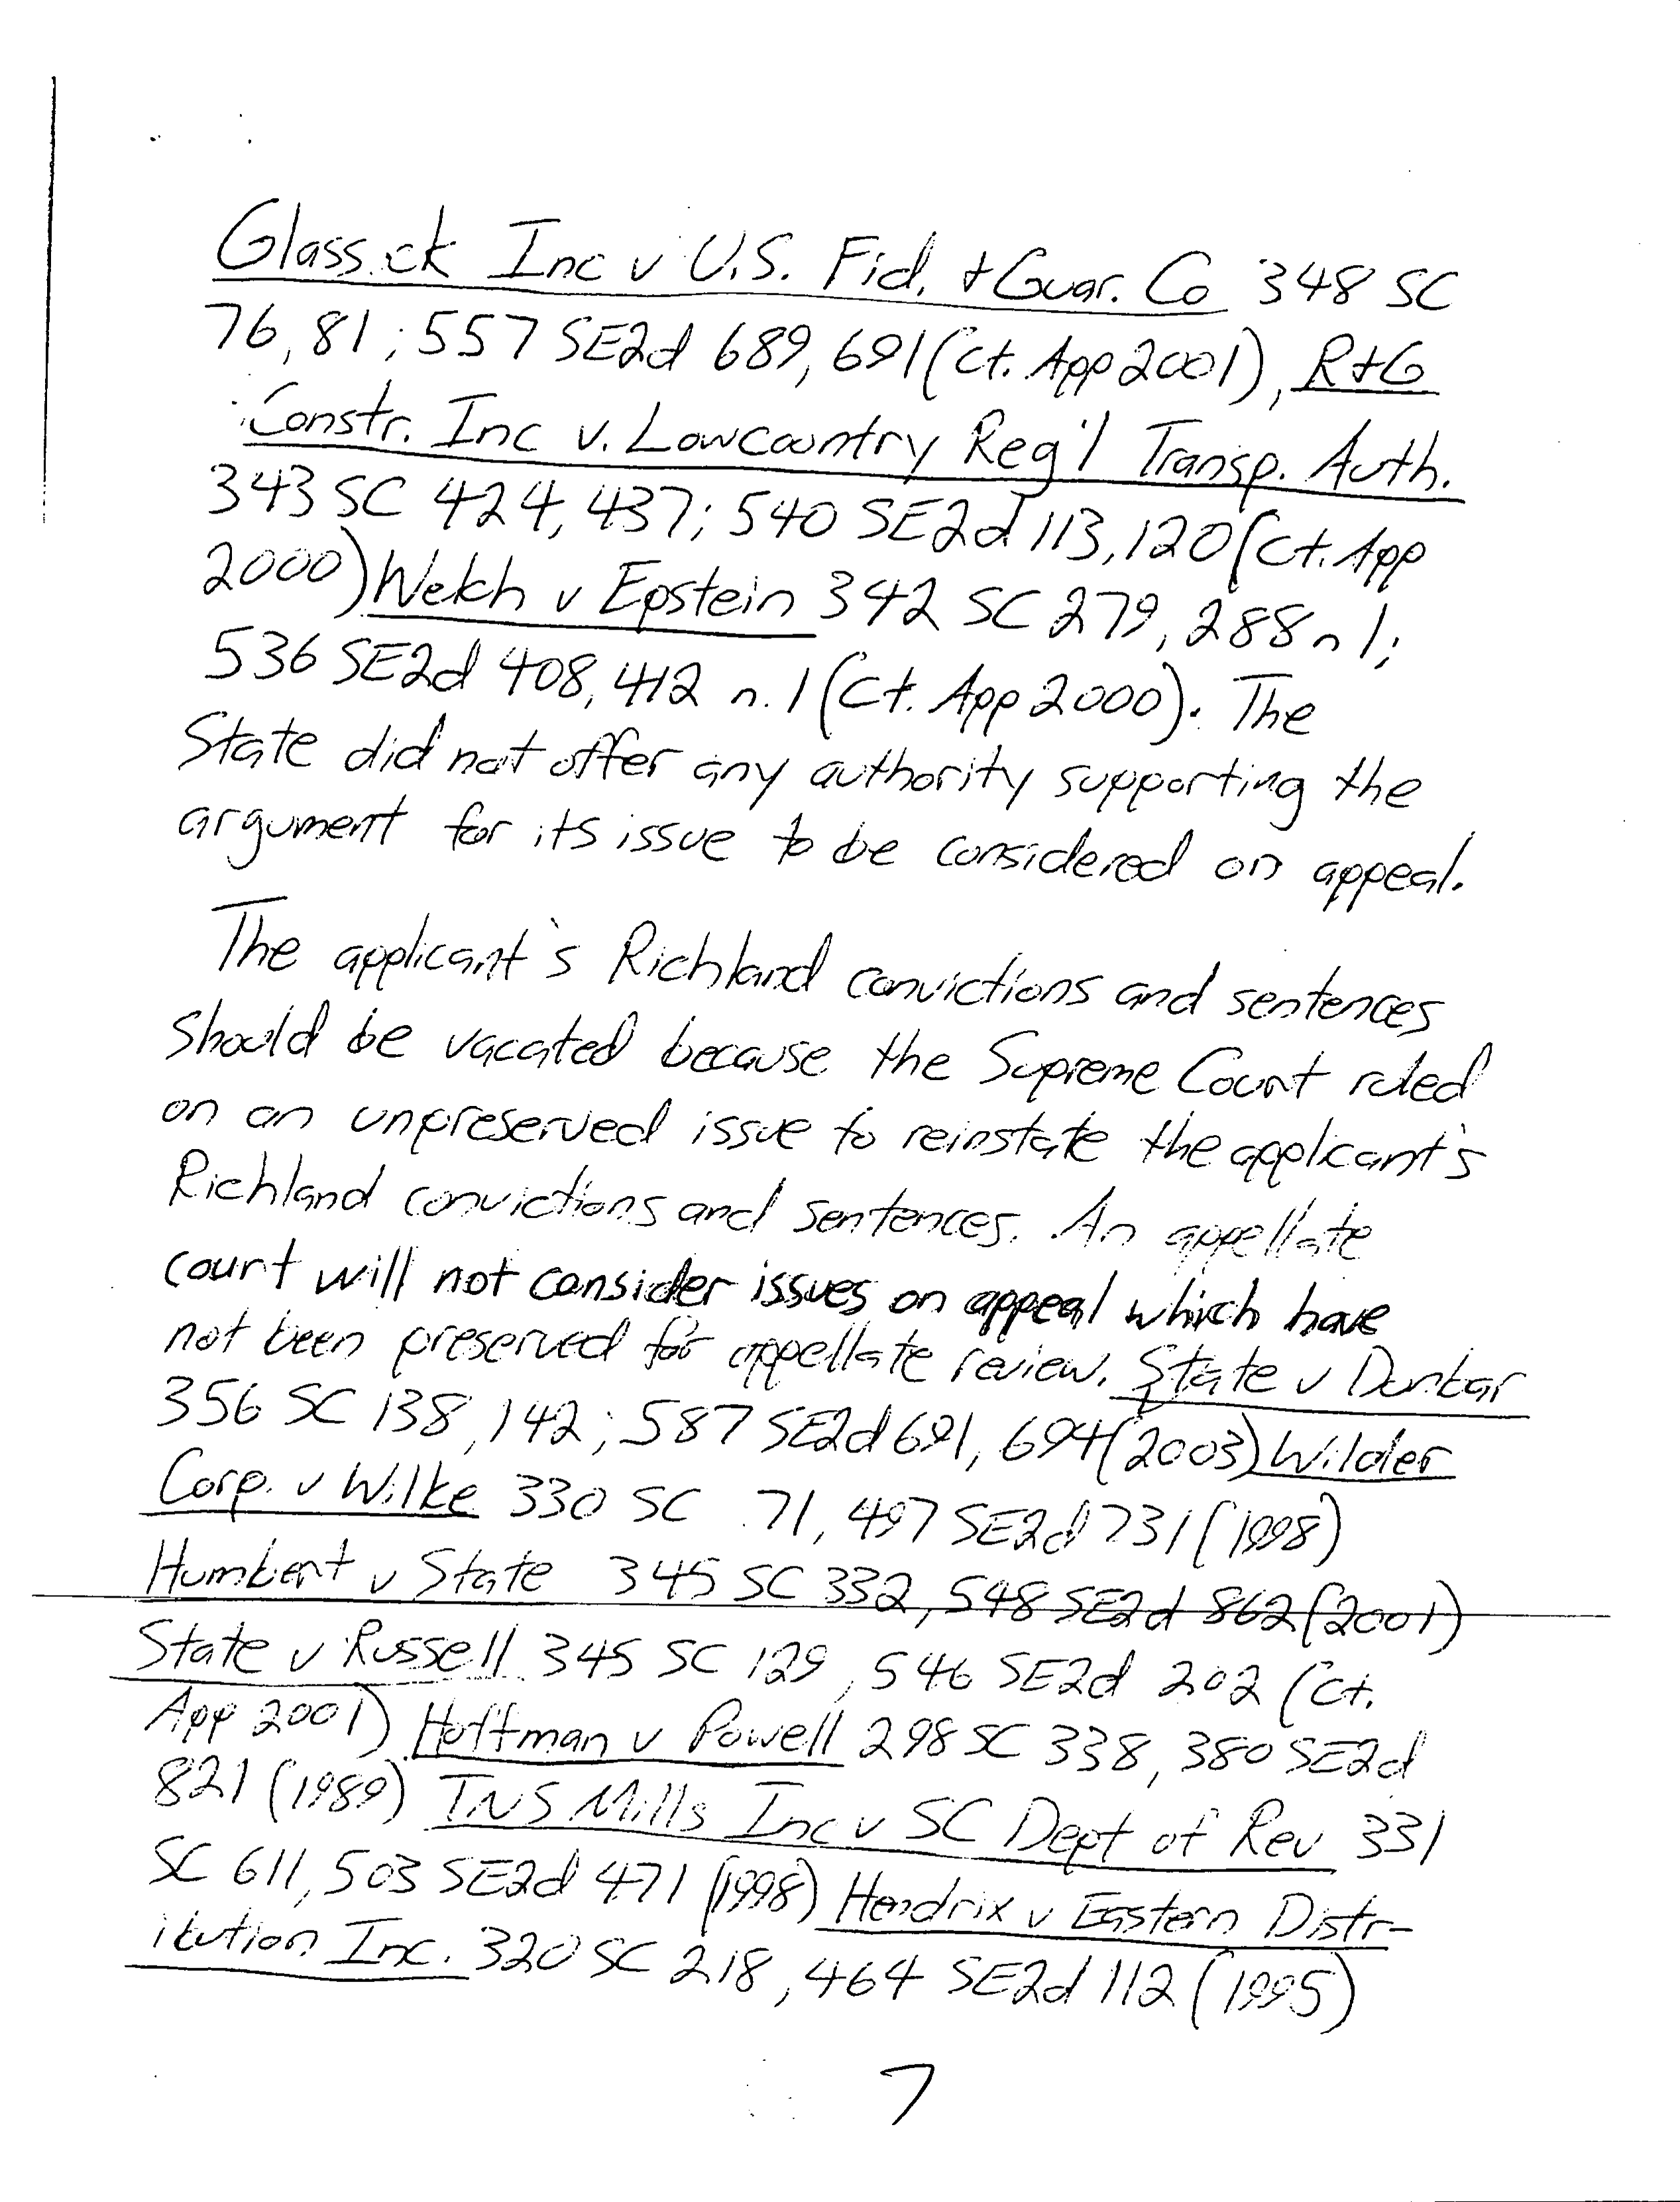 Glassck Inc v U.S. Fid. + Guar. Co 348 SC
76, 81; 557 SE2d 689, 691 (Ct. App 2001), R+G
Constr. Inc v. Lowcountry Reg'l Transp. Auth.
343 SC 424, 437; 540 SE2d 113, 120 (Ct. App
2000) Welch v Epstein 342 SC 279, 288 n 1;
536 SE2d 408, 412 n. 1 (Ct. App 2000). The
State did not offer any authority supporting the
argument for its issue to be considered on appeal.
The applicant's Richland convictions and sentences
should be vacated because the Supreme Court ruled
on an unpreserved issue to reinstate the applicant's
Richland convictions and sentences. An appellate
court will not consider issues on appeal which have
not been preserved for appellate review. State v Dunbar
356 SC 138, 142; 587 SE2d 691, 694 (2003) Wilder
Corp. v Wilke 330 SC 71, 497 SE2d 731 (1998)
Humbert v State 345 SC 332, 548 SE2d 862 (2001)
State v Russell 345 SC 129, 546 SE2d 202 (Ct.
App 2001) Hoffman v Powell 298 SC 338, 380 SE2d
821 (1989) TNS Mills Inc v SC Dept of Rev 331
SC 611, 503 SE2d 471 (1998) Hendrix v Eastern Distr-
ibution Inc. 320 SC 218, 464 SE2d 112 (1995)
7